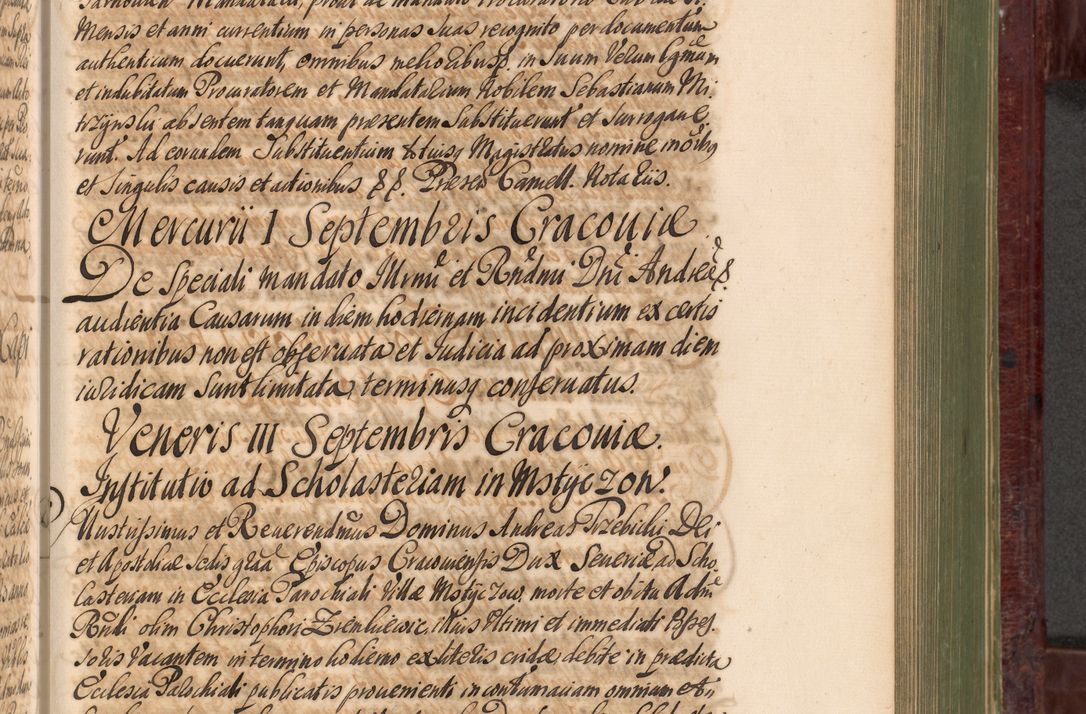 Mensis et anni currentium in personas suas recognito per documentum
authenticum docuerunt, omnibus melioribusq in suum Verum Lgmum
et indubitatum Procuratorem et Mandatarium Nobilem Sebastianum Mi,
trzynski absentem tanquam praesentem Substituerunt et surrogave,
runt. Ad eorundem Substituentium totiusq Magistratus nomine in oibus
et singulis causis et actionibus &c. Praesen Camell. Notariis.
Mercurii I Septembris Cracoviæ.
De speciali mandato Illrmi et Rndmi Dni Andreæ &
audientia Causarum in diem hodiernam incidentium ex certis
rationibus non est observata et Iudicia ad proximam diem
iuridicam sunt limitata, terminusq conservatus.
Veneris III Septembris Cracoviæ.
Institutio ad Scholasteriam in Mstyczow.
Illustrissimus et Reverendmus Dominus Andreas Trzebicki Dei
et Apostolicæ sedis graa Episcopus Cracoviensis Dux Severiæ ad Scho,
lasteriam in Ecclesia Parochiali Villæ Mstyczow, morte et obitu Admi
Rndi olim Christophori Zienkiewic, illius Ultimi et immediati Posses,
soris Vacantem in termino hodierno ex literis cridæ, debite in prædicta
Ecclesia Parochiali publicatis provenienti in contumaciam omnium et